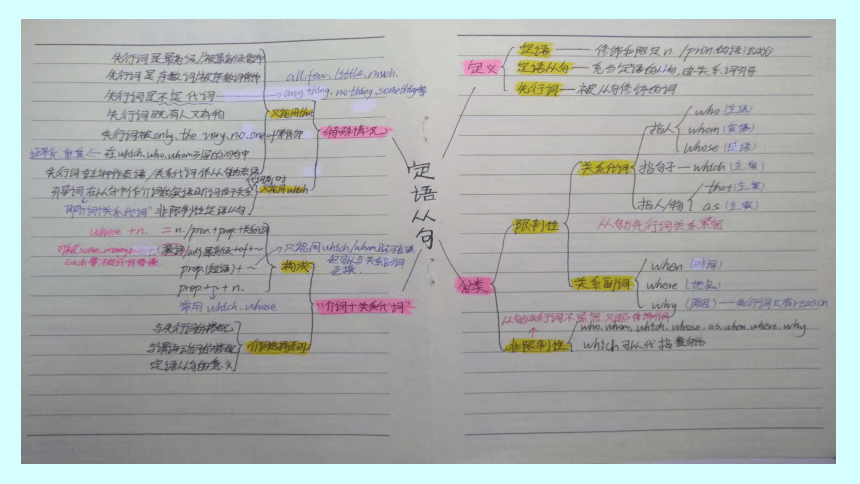 定语从句
定义
定语 —— 修饰和限定n./pron.的语法成分
定语从句 — 充当定语的从句,由关系词引导
先行词 — 被从句修饰的词
分类
限制性
从句与先行词关系紧密
关系代词
指人
who (主语)
whom (宾语)
whose (定语)
指句子 — which (主.宾)
指人/物
that (主.宾)
as (主.宾)
关系副词
when (时间)
where (地点)
why (原因) — 先行词只有reason
非限制性
从句与先行词不紧密
who, whom, which, whose, as, when, where, why
which可以代指整句话
特殊情况
只能用that
先行词是最高级/被最高级修饰
先行词是序数词/被序数词修饰
先行词是不定代词
all. few. little. much.
anything. nothing. something等
先行词既有人又有物
先行词被only, the very, no, one of等修饰
在which, who, whom引导的句中
先行词在主句中作表语/关系代词作从句的表语
只能用which
引导词在从句中作介词的宾语且介词位于关系代词前
"介词+关系代词"
非限制性定语从句
"介词+关系代词"
构成
whose + n. = n./pron.+prep.+关系词
prep.(短语)+~
只能用which/whom且不可省略
但可以与关系副词互换.
prep.+~+n.
常用 which. whose
与先行词的搭配
与谓语动词的搭配
定语从句的意义